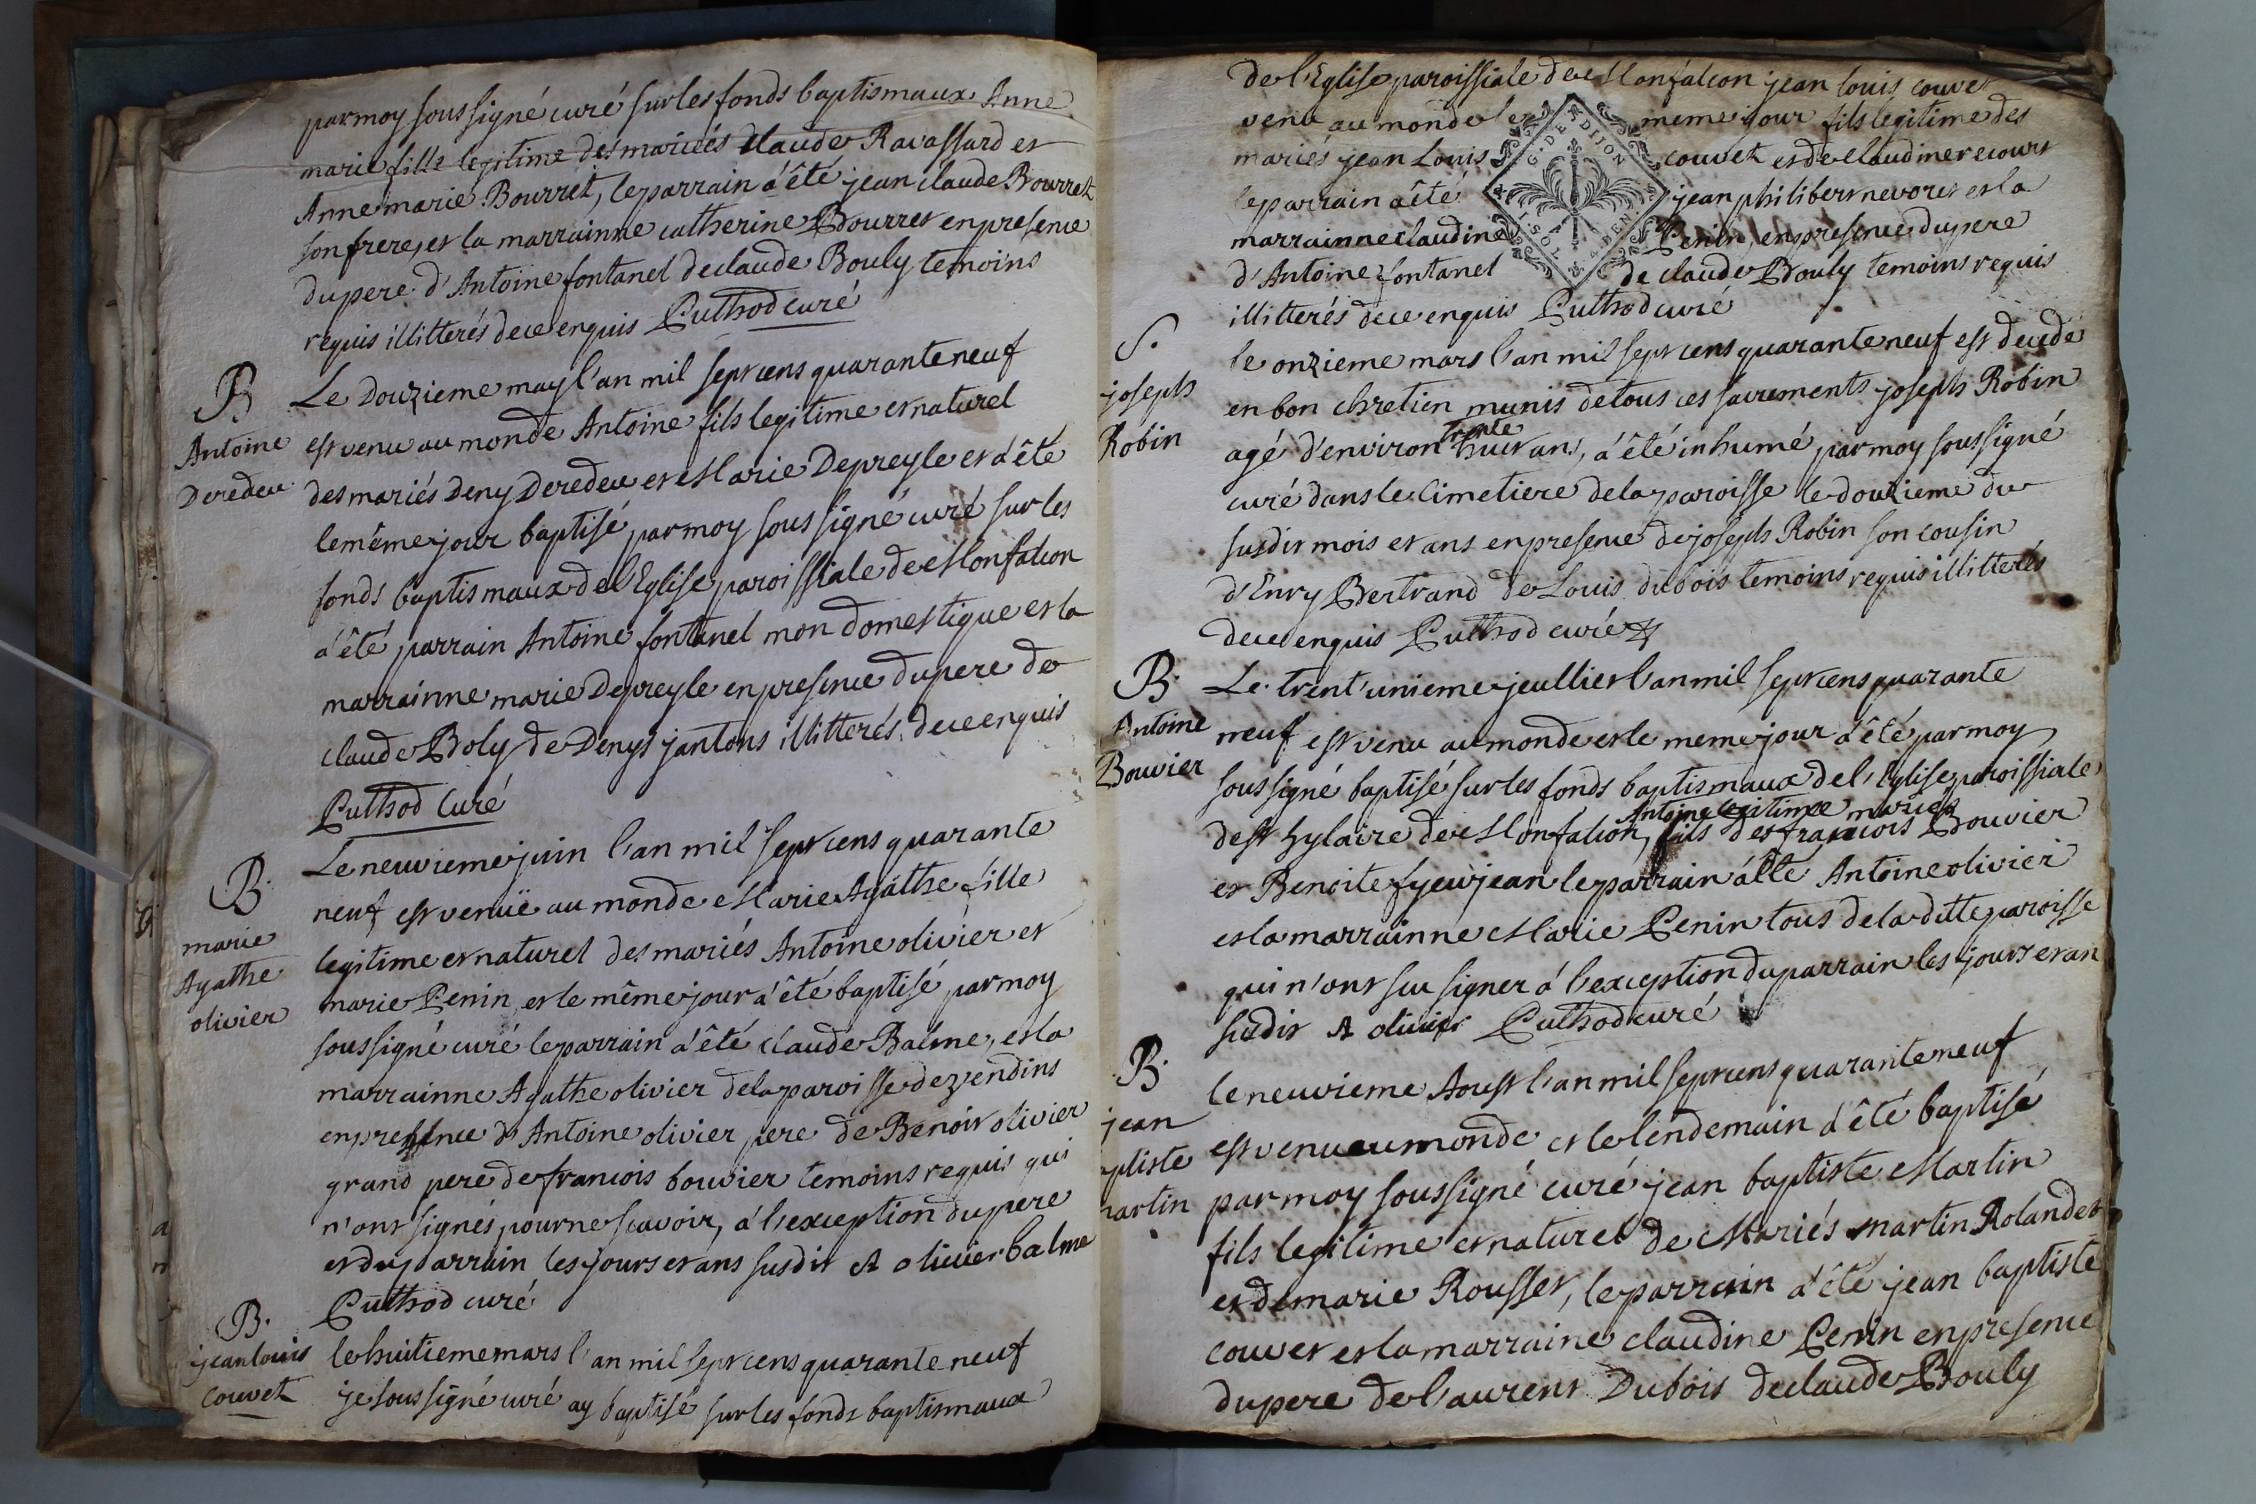 par moy soussigné curé sur les fonds baptismaux Anne
marie fille legitime des mariées Claude Ravassard et
Anne marie Bourret, le parrain a'été jean claude Bourret
son frere, et la marrainne catherine Bourret en presence
du pere d'Antoine fontanel de claude Bouly temoins
requis illitterés de ce enquis Puthod curé
B
Antoine
Deredeu
Le Douzieme may l'an mil sept cens quarante neuf
est venu au monde Antoine fils legitime et naturel
des mariés Deny Deredeu et Marie Depreyle et a'été
le même jour baptisé par moy sous signé curé sur les
fonds baptismaux de l'Eglise paroissiale de Monfalcon
a'été parrain Antoine fontanel mon domestique et la
marrainne marie Depreyle en presence du pere de
claude Boly de Denys jantons illitterés de ce enquis
Puthod Curé
B.
marie
Agathe
olivier
Le neuvieme juin l'an mil sept cens quarante
neuf est venuë au monde Marie Agathe fille
legitime et naturel des mariés Antoine olivier et
marie Penin, et le même jour a'été baptisé par moy
soussigné curé le parrain a'été claude Balme, et la
marrainne Agathe olivier de la paroisse de
en presence d'Antoine olivier pere de Benoit olivier
grand pere de francois bouvier temoins requis qui
n'ont signés pour ne scavoir, a l'exception du pere
et du parrain les jours et ans susdit A olivier balme
Puthod curé
B.
jean louis
couvet
le huitieme mars l'an mil sept cens quarante neuf
je soussigné curé ay baptisé sur les fonds baptismaux
de l'Eglise paroissiale de Monfalcon jean louis couvet
venu au monde le meme jour fils legitime des
mariés jean Louis couvet et de claudine recourt
le parrain a été jean philibert nevoret et la
marrainne claudine Penin, en presence du pere
d'Antoine fontanel de claude Bouly temoins requis
illitterés de ce enquis Puthod curé
G. DE DIJON
S.
joseph
Robin
le onzieme mars l'an mil sept cens quarante neuf est decede
en bon chretien munis de tous ces sacrements joseph Robin
trente
agé d'environ huit ans, a'été inhumé par moy soussigné
curé dans le cimetiere de la paroisse le douzieme du
susdit mois et ans en presence de joseph Robin son cousin
d'Enry Bertrand de Louis dubois temoins requis illitterés
de ce enquis Puthod curé
B.
Antoine
Bouvier
Le trent'unieme jeullier l'an mil sept cens quarante
neuf est venu au monde et le meme jour a'été par moy
soussigné baptisé sur les fonds baptismaux de l'Eglise paroissiale
Antoine legitime mariés
de st hylaire de Monfalcon, fils des francois Bouvier
et Benoite jean le parrain a'été Antoine olivier
et la marrainne Marie Penin tous de la ditte paroisse
qui n'ont scu signer a l'exception du parrain les jours et an
susdit A olivier Puthod curé
B.
jean
ptiste
artin
le neuvieme Aoust l'an mil sept cens quarante neuf
est venu au monde et le lendemain a'été baptisé
par moy soussigné curé jean baptiste Martin
fils legitime et naturel de Mariés martin Rolandet
et de marie Rousset, le parrain a'été jean baptiste
couvet et la marraine claudine Penin en presence
du pere de Laurent Dubois de claude Bouly